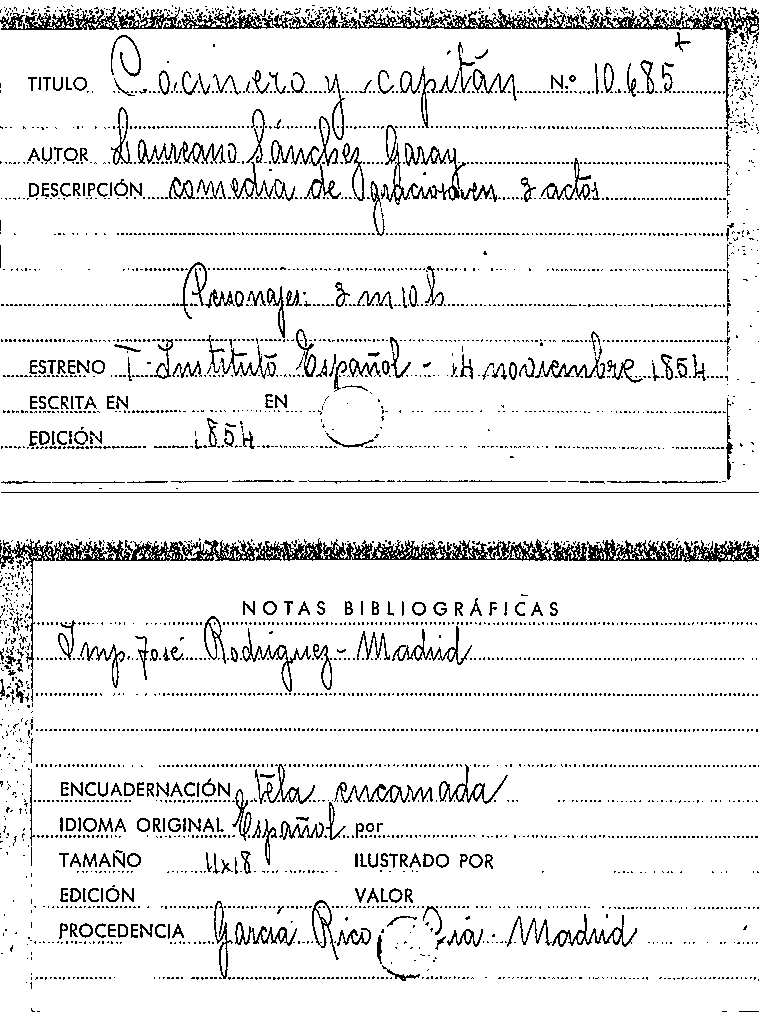 TITULO Cocinero y capitán N.º 10.685
AUTOR Laureano Sánchez Garay
DESCRIPCIÓN comedia de en 3 actos
Personajes: 3 m 10 h
ESTRENO T. Instituto Español - 14 noviembre 1854
ESCRITA EN EN
EDICIÓN 1854
NOTAS BIBLIOGRÁFICAS
Imp. José Rodríguez - Madrid
ENCUADERNACIÓN tela encarnada
IDIOMA ORIGINAL Español por
TAMAÑO 11x18 ILUSTRADO POR
EDICIÓN VALOR
PROCEDENCIA García Rico Madrid